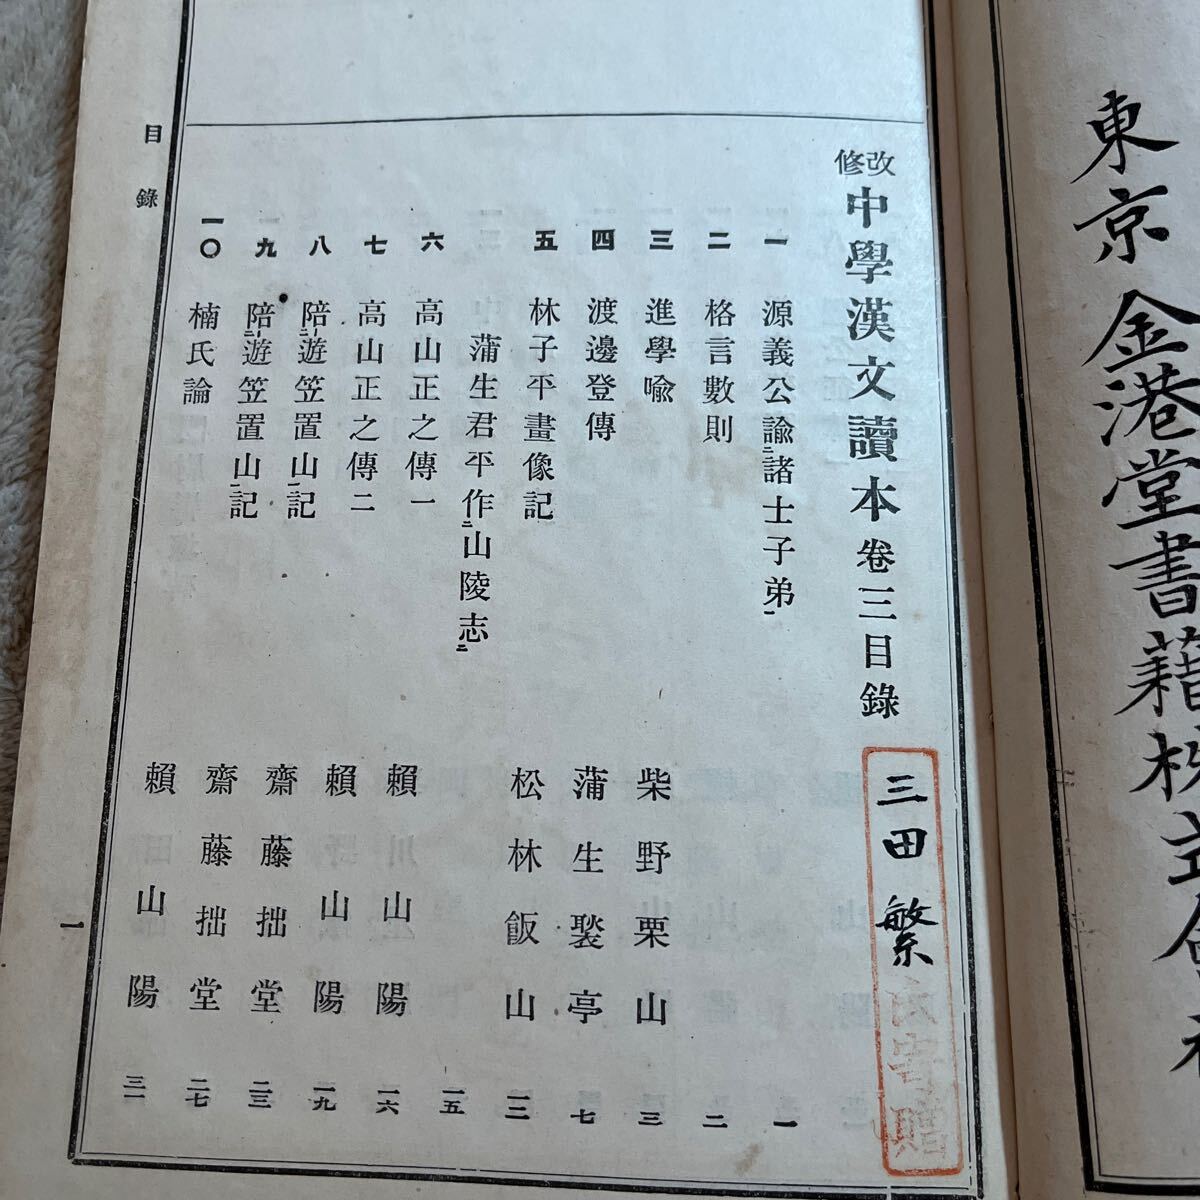 東京金港堂書籍株式會社
改修中學漢文讀本卷三目錄
三田繁氏寄贈
一 源義公諭二諸士子弟一 一
二 格言數則 二
三 進學喩 柴野栗山 三
四 渡邊登傳 蒲生褧亭 七
五 林子平畫像記 松林飯山 一二
蒲生君平作二山陵志一 一五
六 高山正之傳一 賴山陽 一六
七 高山正之傳二 賴山陽 一九
八 陪遊二笠置山一記 齋藤拙堂 二三
九 陪遊二笠置山一記 齋藤拙堂 二七
一〇 楠氏論 賴山陽 三一
目錄
一